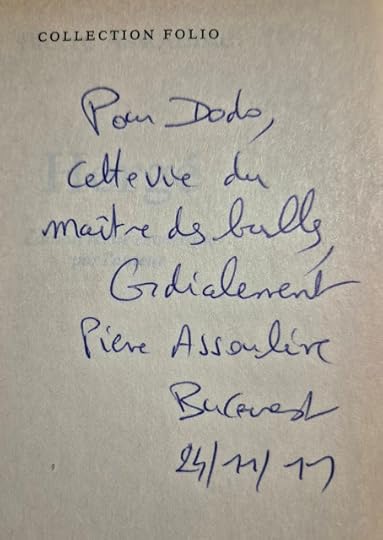 COLLECTION FOLIO
Pour Dodo,
cette vie du
maître des bulles,
Cordialement
Pierre Assouline
Bucarest
24/11/11